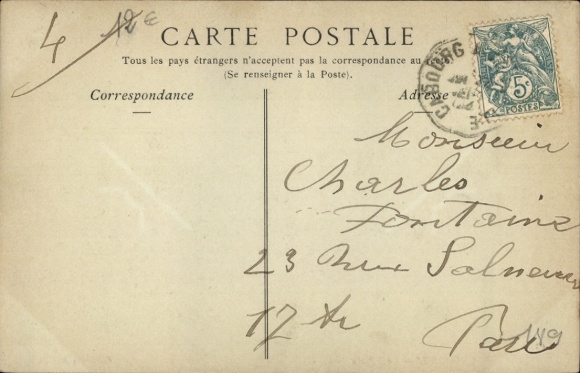 4 12e
CARTE POSTALE
Tous les pays étrangers n'acceptent pas la correspondance au
(Se renseigner à la Poste).
Correspondance
Adresse
CABOURG
5c
POSTES
Monsieur
Charles
Fontaine
23 Rue
17 Ar Paris
149